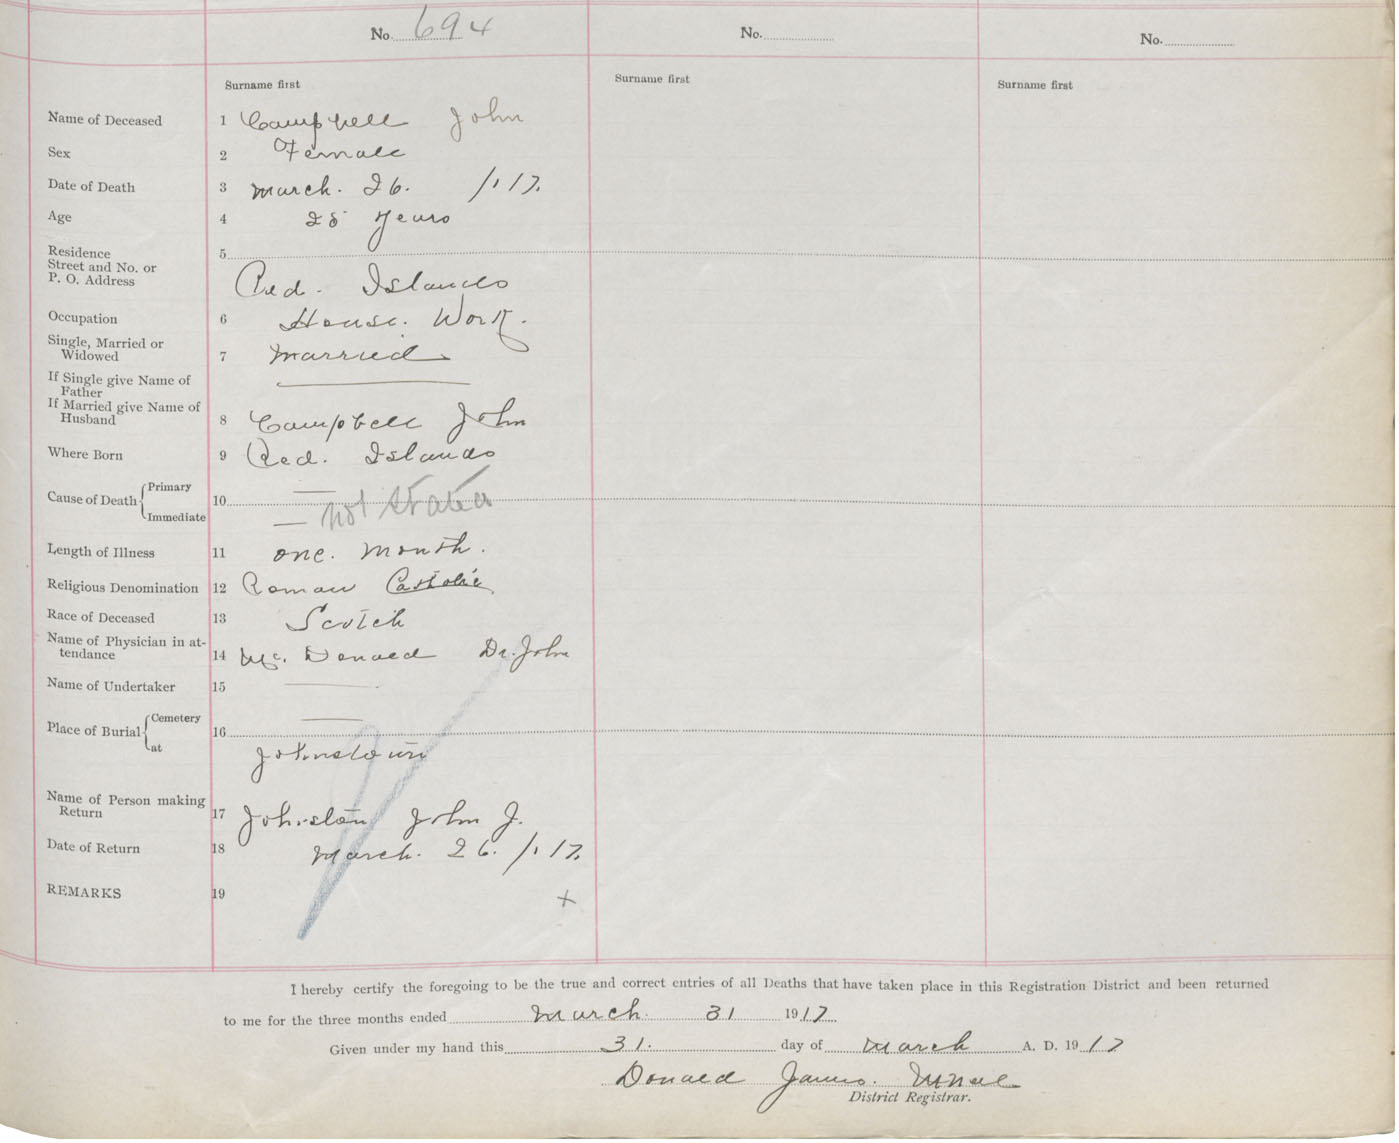 No. 694 No. No.
Surname first Surname first Surname first
Name of Deceased 1 Campbell John
Sex 2 Female
Date of Death 3 March. 26. /. 17.
Age 4 28 Years
Residence
Street and No. or
P. O. Address 5
Red. Islands
Occupation 6 House. Work.
Single, Married or
Widowed 7 Married
If Single give Name of
Father
If Married give Name of
Husband 8 Campbell John
Where Born 9 Red. Islands
Cause of Death { Primary
Immediate 10 — not stated
Length of Illness 11 one. Month.
Religious Denomination 12 Roman Catholic
Race of Deceased 13 Scotch
Name of Physician in at-
tendance 14 Mc. Donald Dr. John
Name of Undertaker 15
Place of Burial { Cemetery
at 16
Johnstown
Name of Person making
Return 17 Johnston John J.
Date of Return 18 March. 26. /. 17.
REMARKS 19 +
I hereby certify the foregoing to be the true and correct entries of all Deaths that have taken place in this Registration District and been returned
to me for the three months ended March. 31 1917
Given under my hand this 31. day of March A. D. 1917
Donald James.
District Registrar.